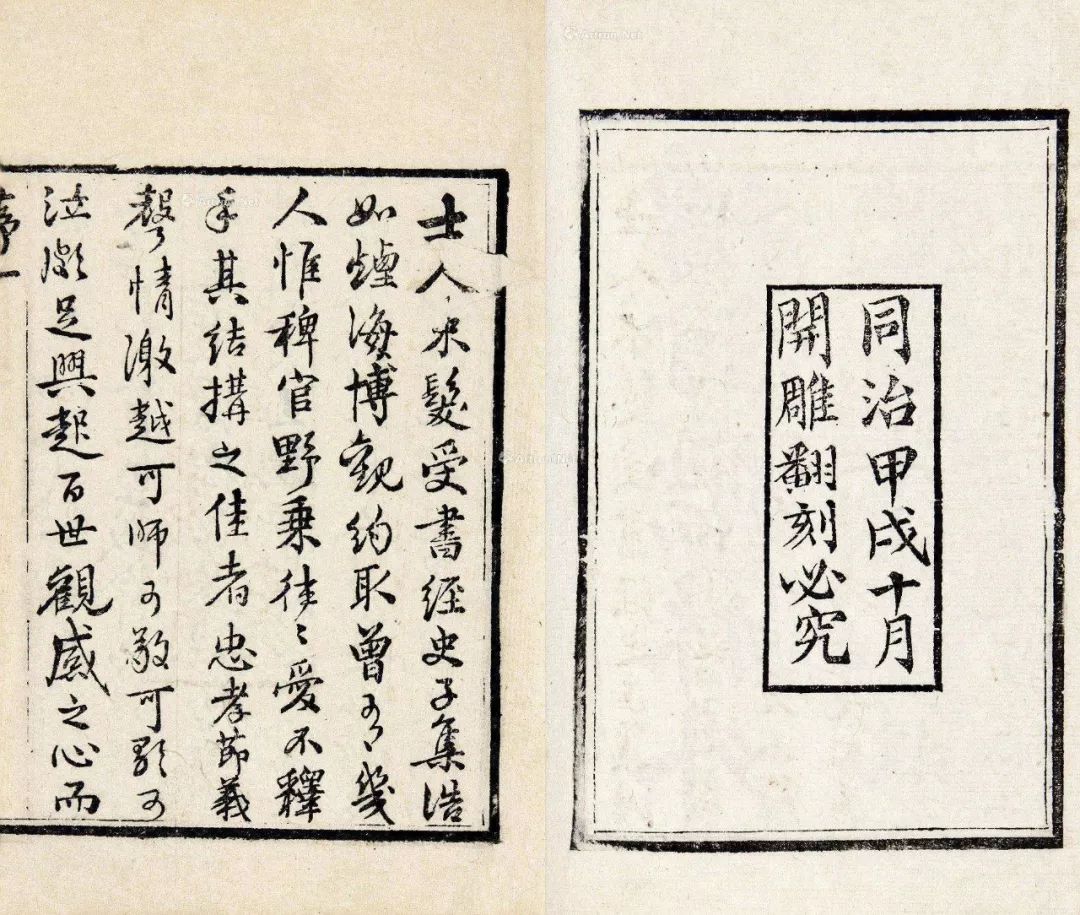 同治甲戌十月
開雕翻刻必究
士人束髮受書經史子集浩
如煙海博觀約取曾有幾
人惟稗官野乘往〻愛不釋
手其結搆之佳者忠孝節義
聲情激越可師可敬可歌可
泣頗足興起百世觀感之心而
序一
Artron.Net